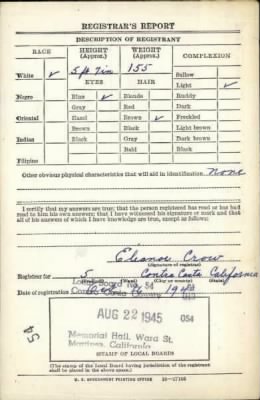 REGISTRAR'S REPORT
DESCRIPTION OF REGISTRANT
RACE HEIGHT (Approx.) WEIGHT (Approx.) COMPLEXION
White ✓ 5 ft 7 in 155 Sallow
EYES HAIR Light ✓
Negro Blue ✓ Blonde Ruddy
Gray Red Dark
Oriental Hazel Brown ✓ Freckled
Brown Black Light brown
Indian Black Gray Dark brown
Bald Black
Filipino
Other obvious physical characteristics that will aid in identification None
I certify that my answers are true; that the person registered has read or has had
read to him his own answers; that I have witnessed his signature or mark and that
all of his answers of which I have knowledge are true, except as follows:
Eleanor Crow
(Signature of registrar)
Registrar for 5 Contra Costa California
(City or county) (State)
Local Board No. 54
Date of registration Oct 16 1940
Contra Costa County 013
AUG 22 1945 054
54
Memorial Hall, Ward St.
Martinez, California
STAMP OF LOCAL BOARD
(The stamp of the Local Board having jurisdiction of the registrant
shall be placed in the above space.)
U. S. GOVERNMENT PRINTING OFFICE 16—17105